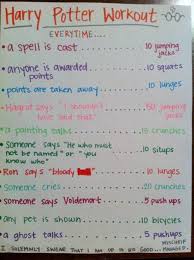 Harry Potter Workout
EVERYTIME...
• a spell is cast ..... 10 jumping jacks
• anyone is awarded points ..... 10 squats
• points are taken away ..... 10 lunges
• Hagrid says "I shouldn't have said that" ..... 50 jumping jacks
• a painting talks ..... 15 crunches
• Someone says "He who must not be named" or "you know who" ..... 10 situps
• Ron says "bloody ..... 10 lunges
• Someone cries ..... 20 crunches
• someone says Voldemort ..... 5 pushups
• any pet is shown ..... 10 bicycles
• a ghost talks ..... 5 pushups
I SOLEMNLY SWEAR THAT I AM UP TO NO GOOD ... MISCHIEF MANAGED.